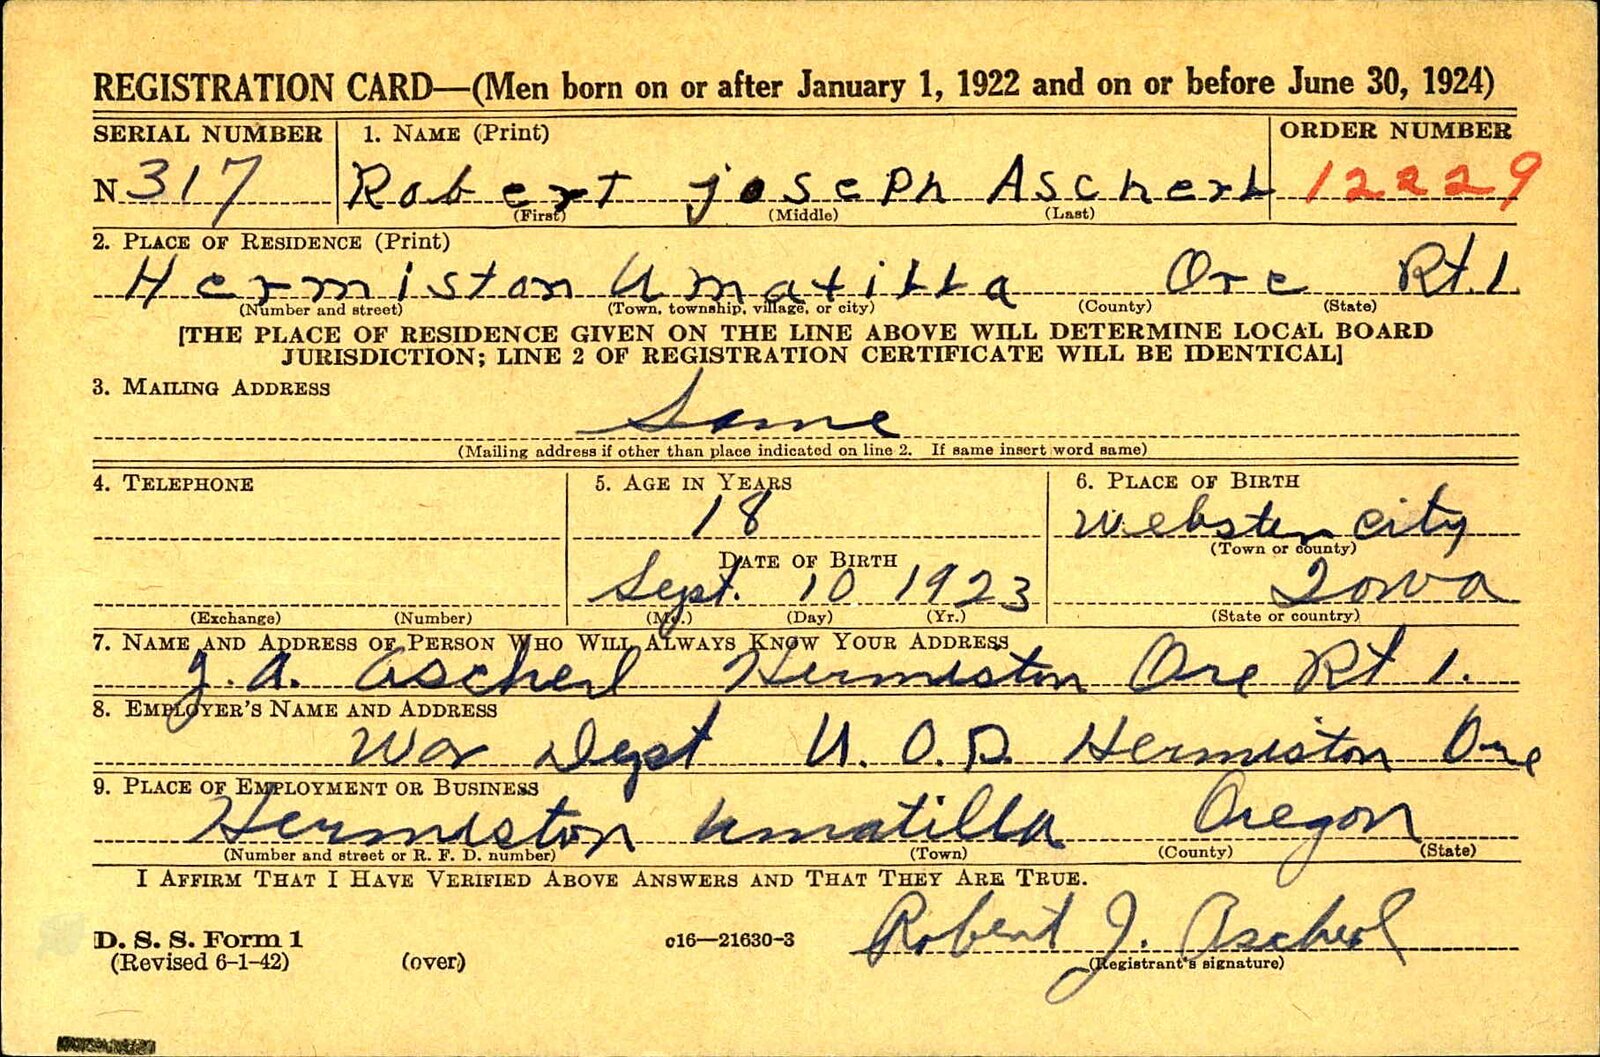 REGISTRATION CARD—(Men born on or after January 1, 1922 and on or before June 30, 1924)
SERIAL NUMBER 1. NAME (Print) ORDER NUMBER
N 317 Robert Joseph Ascherl 12229
(First) (Middle) (Last)
2. PLACE OF RESIDENCE (Print)
Hermiston Umatilla Ore Rt. 1.
(Number and street) (Town, township, village, or city) (County) (State)
[THE PLACE OF RESIDENCE GIVEN ON THE LINE ABOVE WILL DETERMINE LOCAL BOARD
JURISDICTION; LINE 2 OF REGISTRATION CERTIFICATE WILL BE IDENTICAL]
3. MAILING ADDRESS
Same
(Mailing address if other than place indicated on line 2. If same insert word same)
4. TELEPHONE 5. AGE IN YEARS 6. PLACE OF BIRTH
18 Webster City
DATE OF BIRTH (Town or county)
Sept. 10 1923 Iowa
(Exchange) (Number) (Mo.) (Day) (Yr.) (State or country)
7. NAME AND ADDRESS OF PERSON WHO WILL ALWAYS KNOW YOUR ADDRESS
J. A. Ascherl Hermiston Ore Rt 1.
8. EMPLOYER'S NAME AND ADDRESS
War Dept U. O. D. Hermiston Ore
9. PLACE OF EMPLOYMENT OR BUSINESS
Hermiston Umatilla Oregon
(Number and street or R. F. D. number) (Town) (County) (State)
I AFFIRM THAT I HAVE VERIFIED ABOVE ANSWERS AND THAT THEY ARE TRUE.
Robert J. Ascherl
D. S. S. Form 1 c16—21630-3
(Revised 6-1-42) (over) (Registrant's signature)